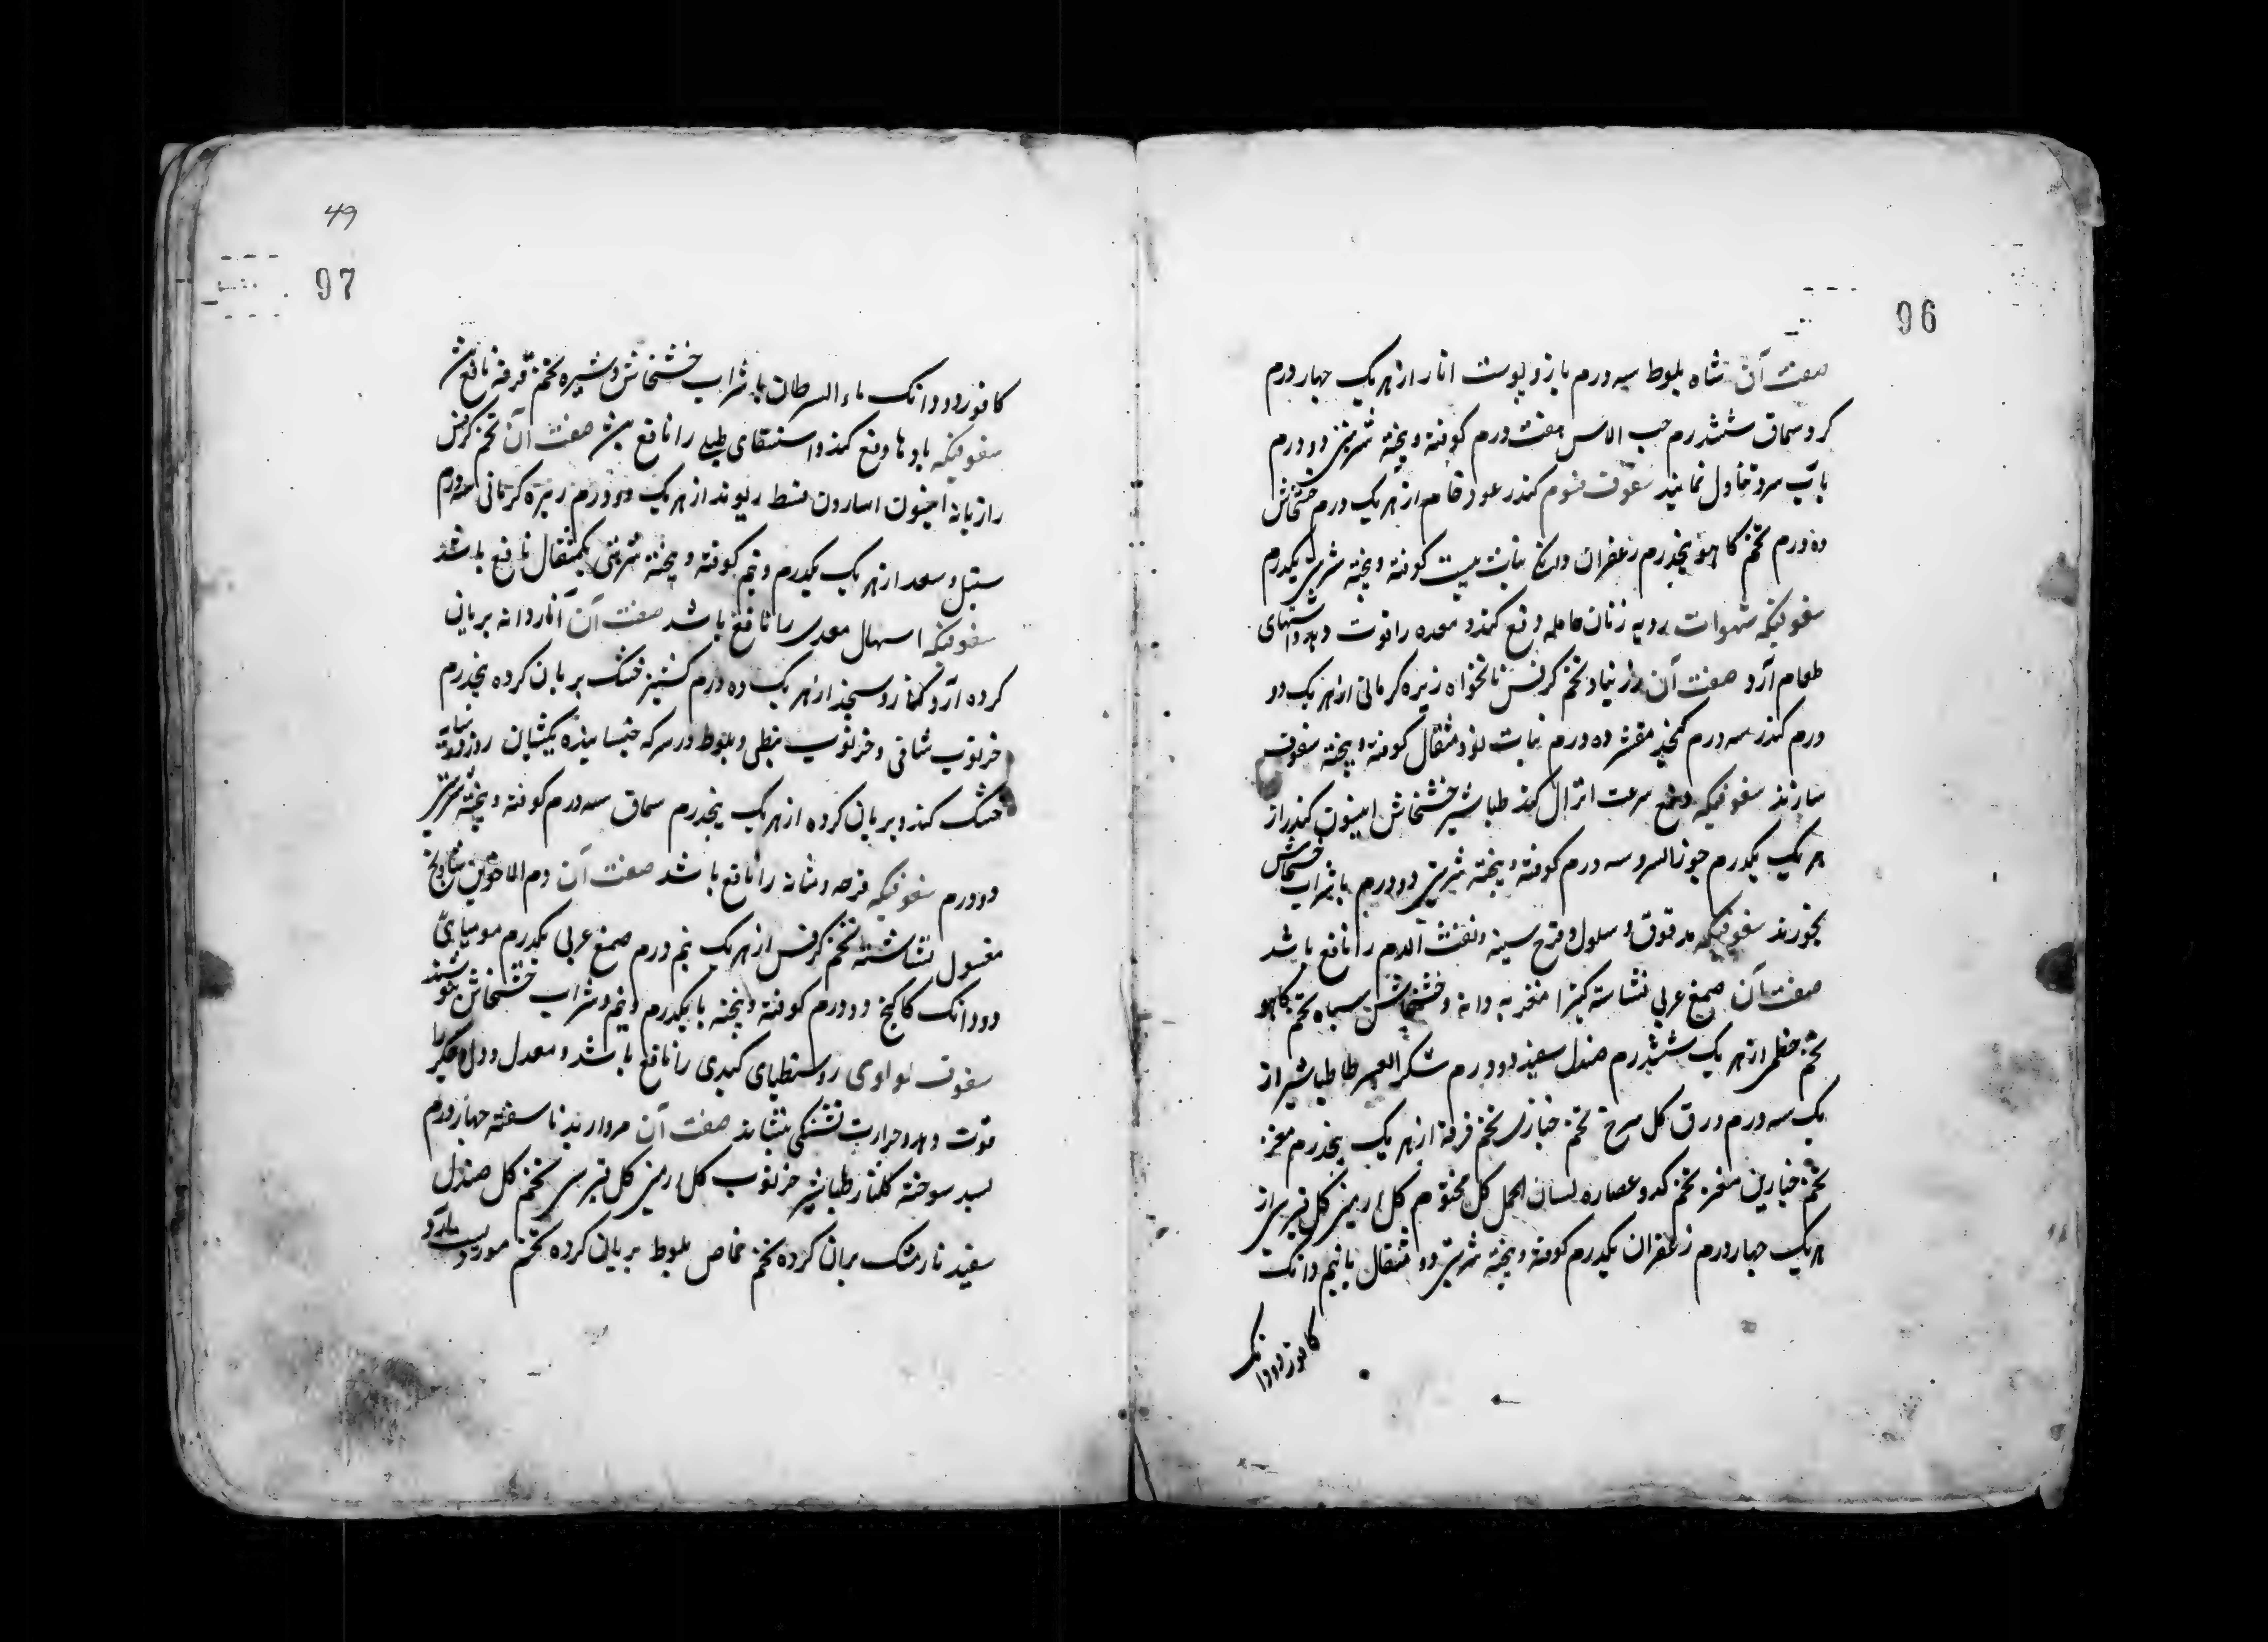 96
صفت آن شاه بلوط سه درم مازو پوست انار از هر یک چهار درم
کر و سماق ششدرم حب الاس هفت درم کوفته و بیخته شربتی دو درم
بآب سرد تناول نمایند سفوف منوم کندر عود خام از هر یک درم خشخاش
ده درم تخم کاهو پنجدرم زعفران دانک نبات بیست کوفته و بیخته شربتی یکدرم
سفوفیکه شهوات ردیه زنان حامله دفع کند و معده را قوت دهد و اشتهای
طعام آرد صفت آن زرنباد تخم کرفس نانخواه زیره کرمانی از هر یک دو
درم کندر سه درم کنجد مقشر ده درم نبات نود مثقال کوفته و بیخته سفوف
سازند سفوفیکه دفع سرعت انزال کند طباشیر خشخاش انیسون کندر از
هر یک یکدرم جوزالسرو سه درم کوفته و بیخته شربتی دو درم با شراب خشخاش
بخورند سفوفیکه مدقوق و مسلول و قرح سینه و نفث الدم را نافع باشد
صفت آن صمغ عربی نشاسته کتیرا مغز به دانه و خشخاش سیاه تخم کاهو
تخم خطمی از هر یک ششدرم صندل سفید دو درم شکر العسر طا طباشیر از
یک سه درم ورق کل سرخ تخم خبازی تخم خرفه از هر یک پنجدرم مغز
تخم خیارین مغز تخم کدو عصاره لسان الحمل کل مختوم کل ارمنی کل قبرسی از
هر یک چهار درم زعفران یکدرم کوفته و بیخته شربتی دو مثقال بانیم دانک
کافور دودانک
49
97
کافور دو دانک ماء السرطان یا شراب خشخاش و شیره تخم خرفه نافع بود
سفوفیکه بادها دفع کند و استسقای طبلی را نافع بود صفت آن تخم کرفس
رازیانه انیسون اسارون قسط ریوند از هر یک دو درم زیره کرمانی سه درم
سنبل و سعد از هر یک یکدرم و نیم کوفته و بیخته شربتی یکمثقال نافع باشد
سفوفیکه اسهال معدی را نافع باشد صفت آن اناردانه بریان
کرده آرد کنار و سنجد از هر یک ده درم کشنیز خشک بریان کرده پنجدرم
خرنوب شامی و خرنوب نبطی و بلوط در سرکه خیسانیده یکشبان روز در سایه
خشک کنند و بریان کرده از هر یک پنجدرم سماق سه درم کوفته و بیخته شربتی
دو درم سفوفیکه قرحه مثانه را نافع باشد صفت آن دم الاخوین شادنج
مغسول نشاسته تخم کرفس از هر یک نیم درم صمغ عربی یکدرم مومیایی
دودانک کاکنج دو درم کوفته و بیخته با یکدرم و نیم و شراب خشخاش بنوشند
سفوف لولوی ذوسنطیای کبدی را نافع باشد و معده و دل و جکر را
قوت دهد و حرارت تشنکی بنشاند صفت آن مروارید ناسفته چهار درم
بسد سوخته کلنار طباشیر خرنوب کل ارمنی کل قبرسی تخم کل صندل
سفید نارمشک بریان کرده تخم حماض بلوط بریان کرده تخم مورد